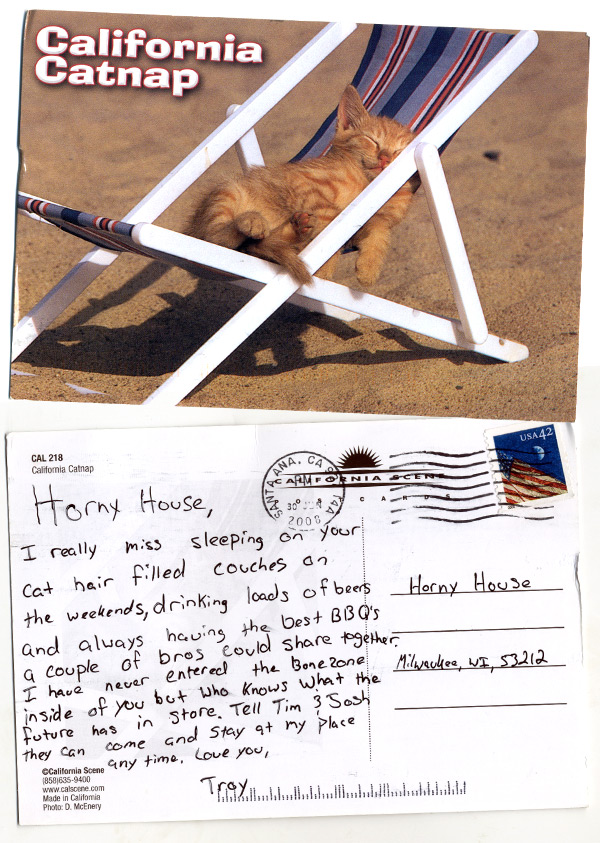 California
Catnap
CAL 218
California Catnap
SANTA ANA, CA
30 JUN
2008
CALIFORNIA SCENE
CARDS
USA 42
Horny House,
I really miss sleeping on your
cat hair filled couches on
the weekends, drinking loads of beers
and always having the best BBQ's
a couple of bros could share together.
I have never entered the Bonezone
inside of you but who knows what the
future has in store. Tell Tim & Josh
they can come and stay at my place
any time. Love you,
Troy
Horny House
Milwaukee, WI, 53212
©California Scene
(858)635-9400
www.calscene.com
Made in California
Photo: D. McEnery